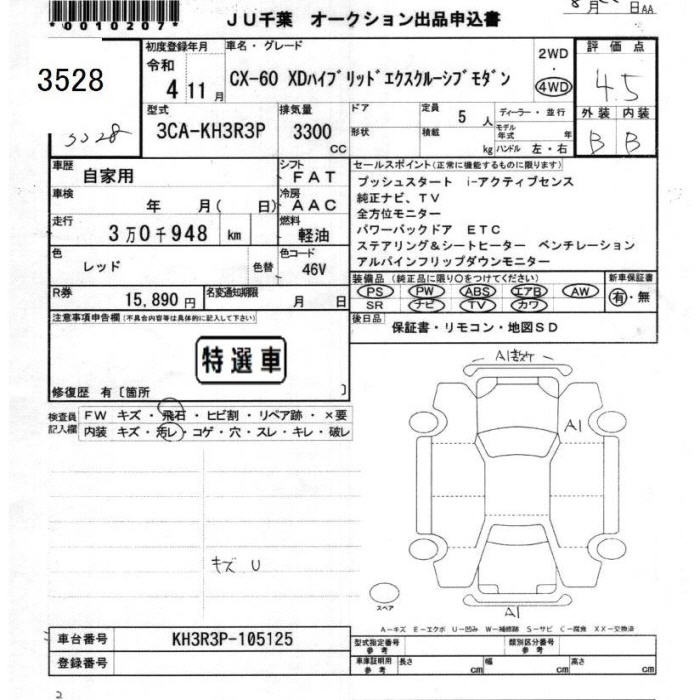 *0010207*
JU千葉 オークション出品申込書
8月 日AA
3528
3028
初度登録年月
令和
4 11月
車名・グレード
CX-60 XDハイブリッドエクスクルーシブモダン
2WD
・
4WD
評価点
4.5
外装 内装
B B
型式
3CA-KH3R3P
排気量
3300
cc
ドア
形状
定員
5人
積載
kg
ディーラー・並行
モデル年式 年
ハンドル 左・右
車歴
自家用
シフト
FAT
車検
年 月( 日)
冷房
AAC
走行
3万0千948 km
燃料
軽油
色
レッド
色替
色コード
46V
R券
15,890円
名変通知期限
月 日
セールスポイント(正常に機能するものに限ります)
プッシュスタート i-アクティブセンス
純正ナビ、TV
全方位モニター
パワーバックドア ETC
ステアリング&シートヒーター ベンチレーション
アルパインフリップダウンモニター
装備品 (純正品に限り○をつけてください)
PS PW ABS エアB AW
SR ナビ TV カワ
新車保証書
有・無
後日品
保証書・リモコン・地図SD
注意事項申告欄(不具合内容等は具体的に記入して下さい)
特選車
修復歴 有〔箇所 〕
検査員記入欄
FW キズ・飛石・ヒビ割・リペア跡・×要
内装 キズ・汚レ・コゲ・穴・スレ・キレ・破レ
キズ U
A1
A1
A1
スペア
A−キズ E−エクボ U−凹み W−補修跡 S−サビ C−腐食 XX−交換済
車台番号
KH3R3P-105125
登録番号
型式指定番号
参考
類別区分番号
参考
車庫証明用
参考
長さ cm
幅 cm
高さ cm
2